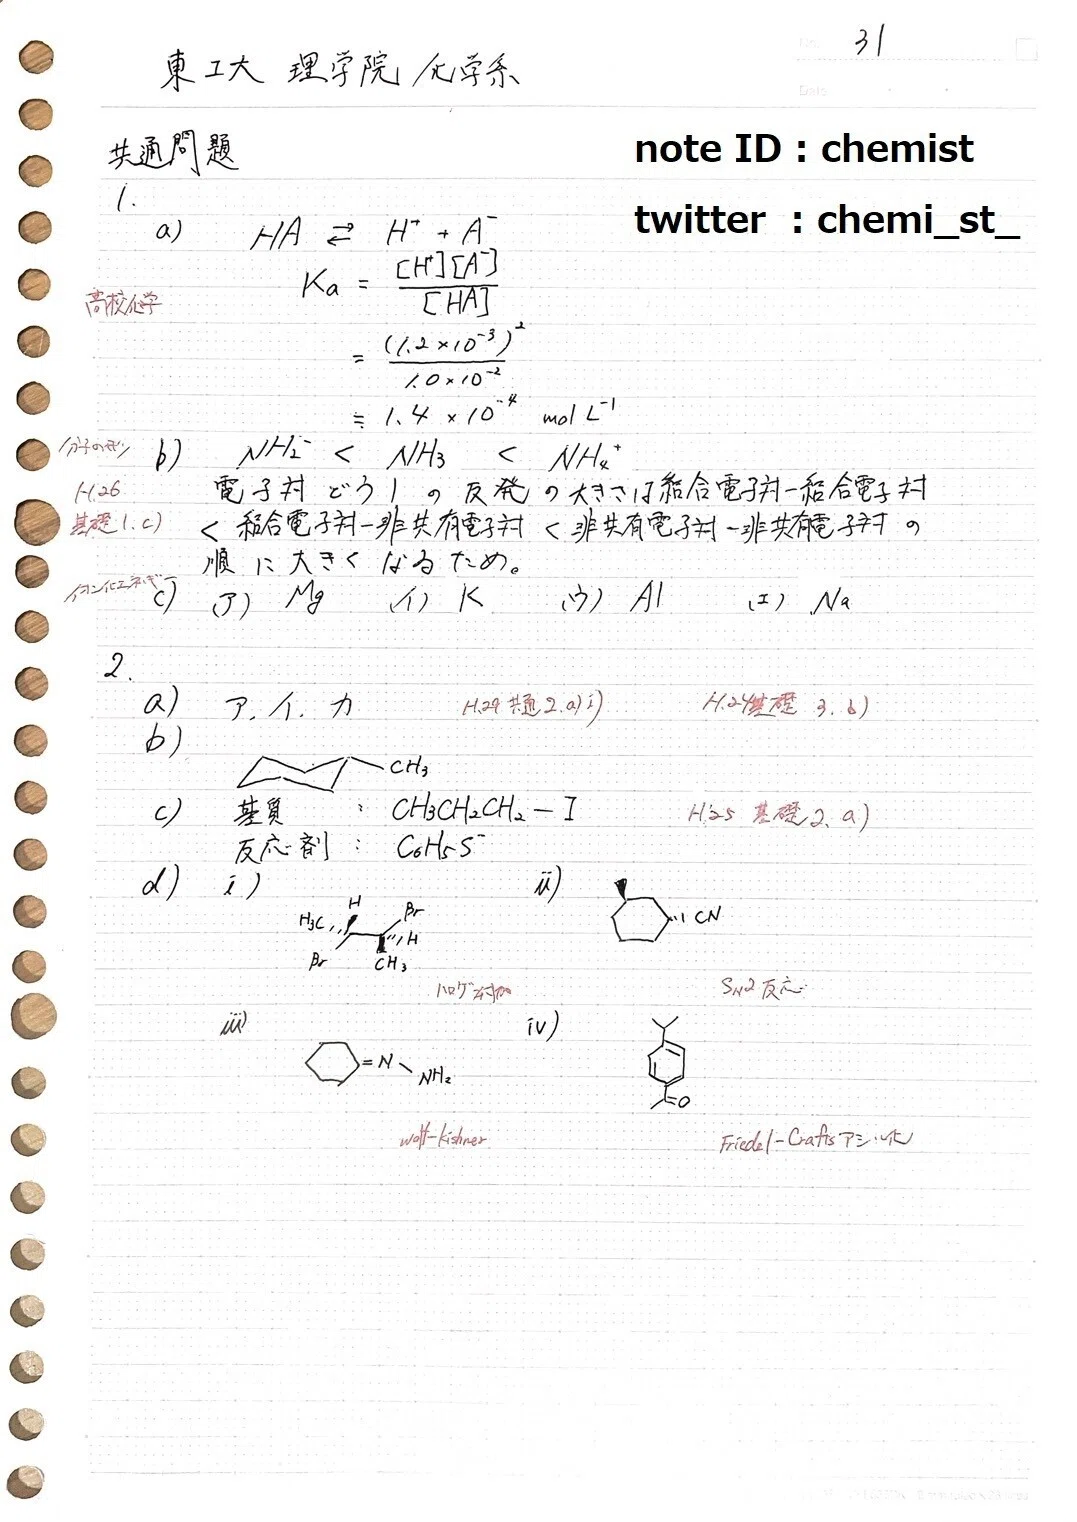 31
東工大 理学院 化学系
note ID : chemist
twitter : chemi_st_
共通問題
1.
a) HA ⇄ H⁺ + A⁻
Ka = [H⁺][A⁻] / [HA]
高校化学
= (1.2×10⁻³)² / 1.0×10⁻²
≒ 1.4 × 10⁻⁴ mol L⁻¹
b) NH₂⁻ < NH₃ < NH₄⁺
H.26 電子対どうしの反発の大きさは結合電子対-結合電子対
基礎1.c) < 結合電子対-非共有電子対 < 非共有電子対-非共有電子対の
順に大きくなるため。
イオン化エネルギー
c) (ア) Mg (イ) K (ウ) Al (エ) Na
2.
a) ア、イ、カ H.29 共通2.a)i) H.24基礎 3.b)
b)
CH₃
c) 基質 : CH₃CH₂CH₂-I H.25 基礎2.a)
反応剤 : C₆H₅S⁻
d) i) ii)
H₃C H Br
Br CH₃ H
CN
SN2反応
iii) iv)
=N NH₂
=O
wolf-kishner
Friedel-Craftsアシル化